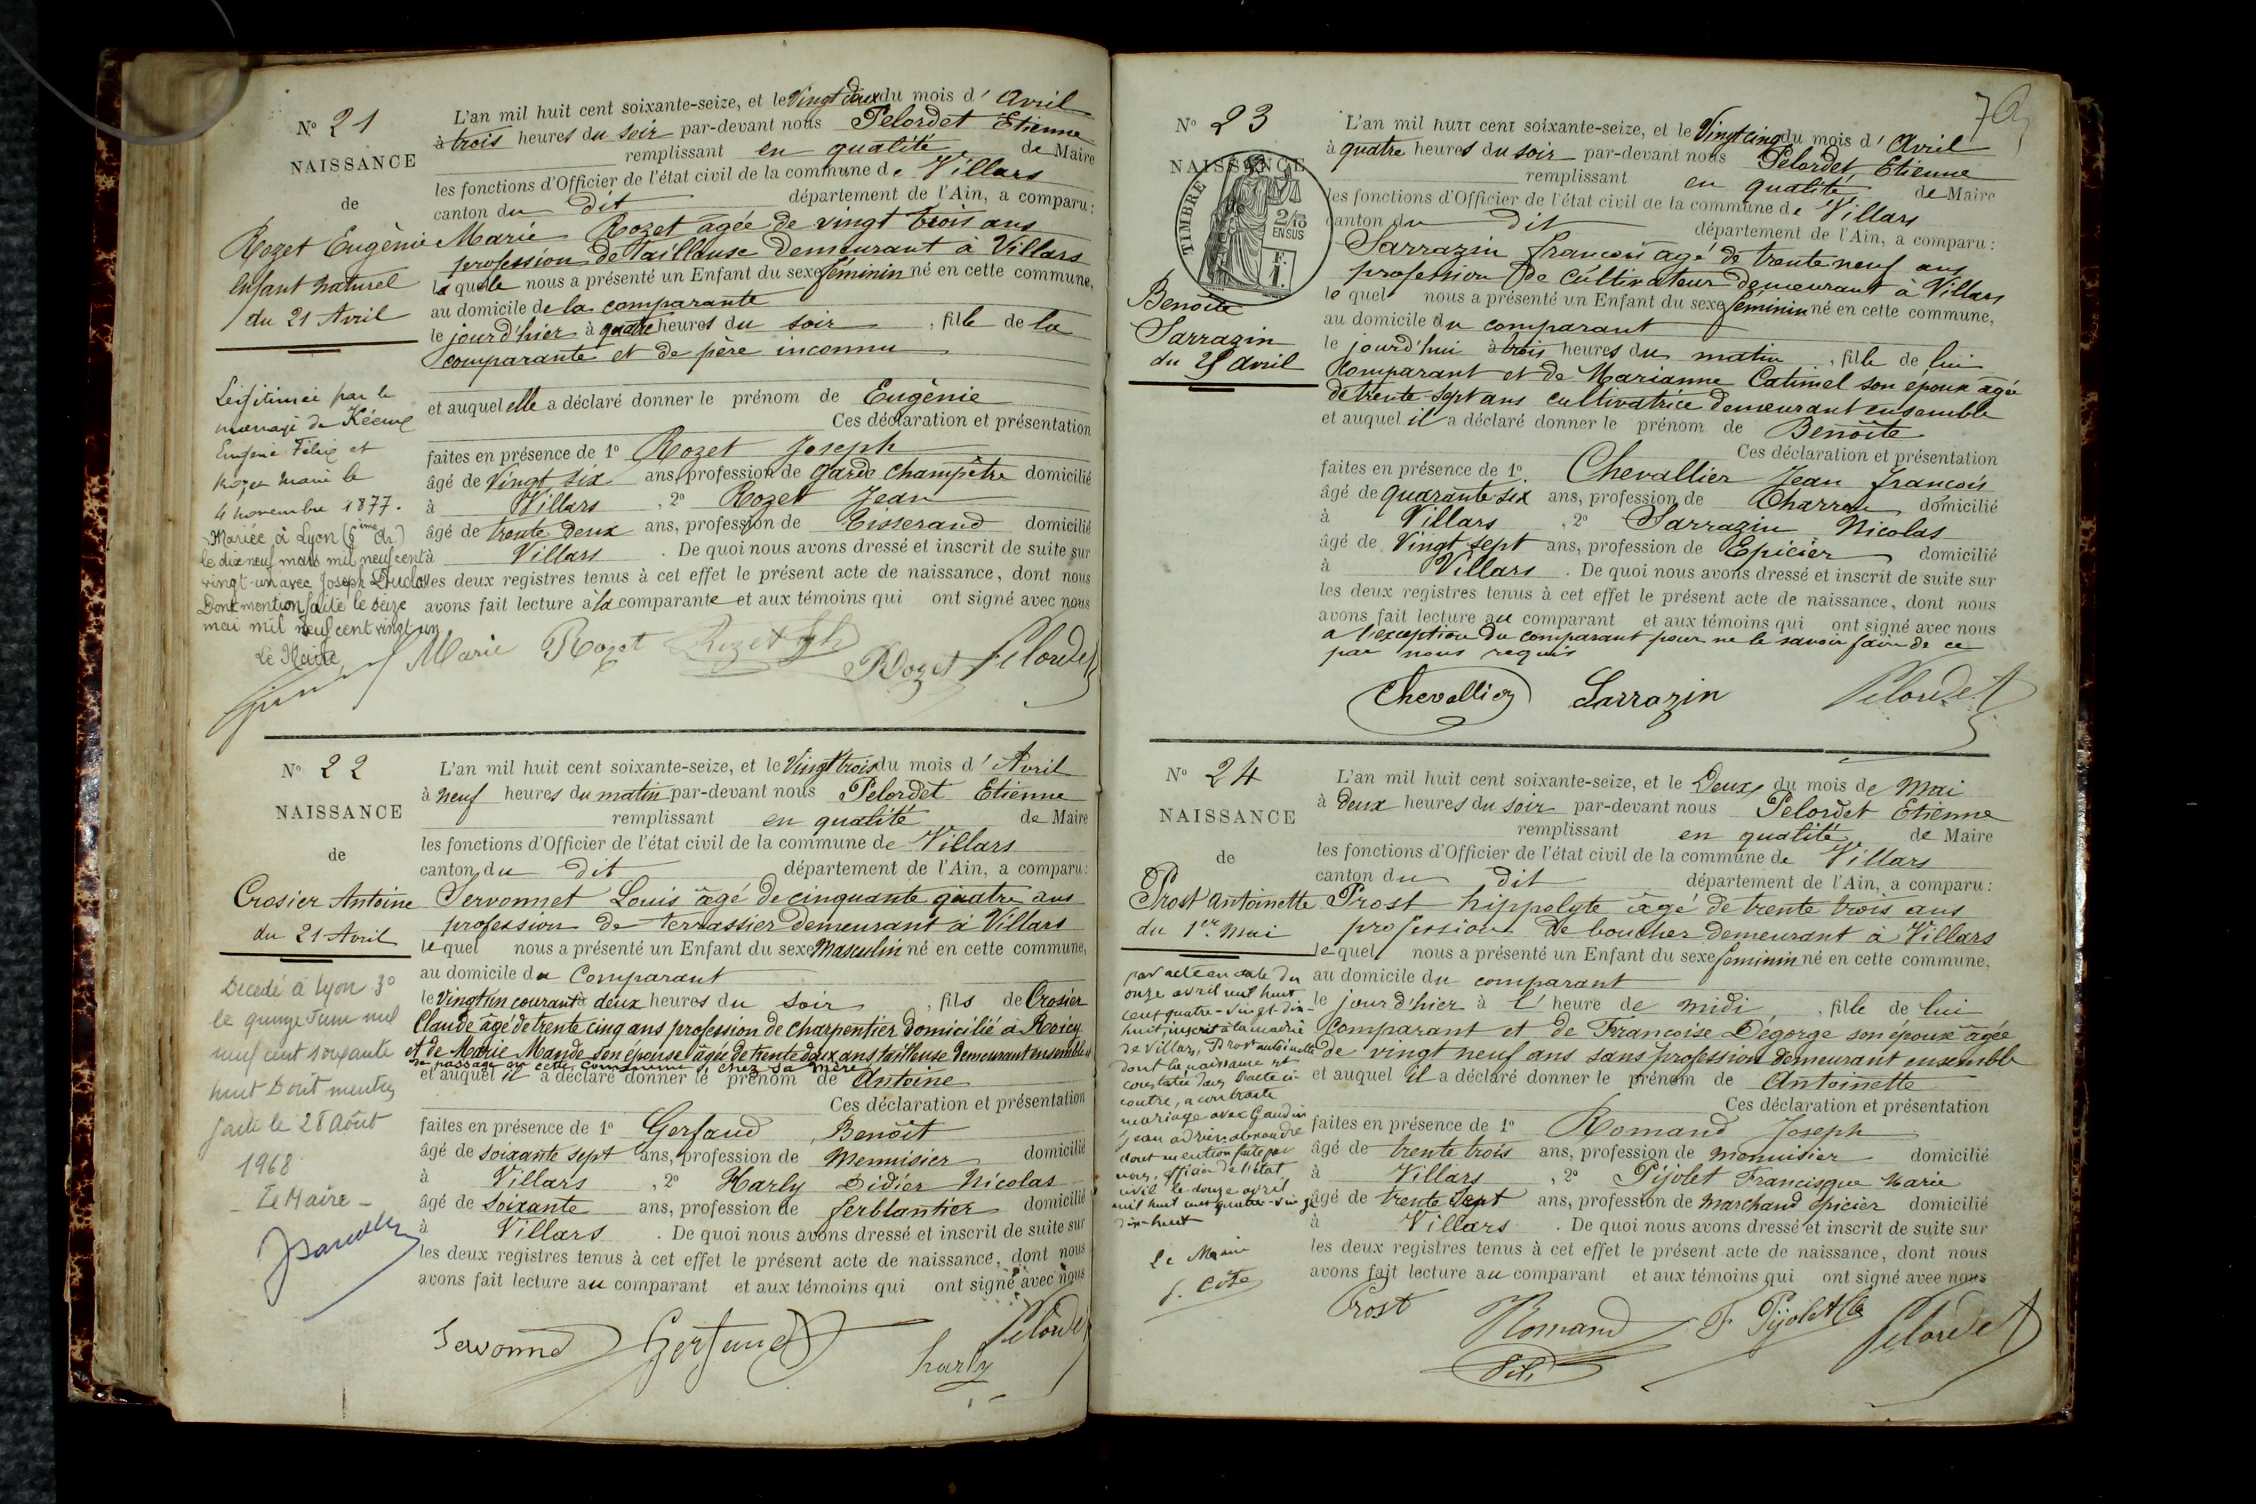 N° 21
NAISSANCE
de
Rozet Eugènie
Enfant naturel
du 21 Avril
Légitimée par le
mariage de
Eugène Félix et
Rozet Marie le
4 novembre 1877.
Mariée à Lyon (6ème Ar.)
le dix neuf mars mil neuf cent
vingt-un avec Joseph Duclos
Dont mention faite le seize
mai mil neuf cent vingt un
Le Maire
L'an mil huit cent soixante-seize, et le Vingt deux du mois d' Avril
à trois heures du soir par-devant nous Pelordet Etienne
remplissant en qualité de Maire
les fonctions d'Officier de l'état civil de la commune de Villars
canton du dit département de l'Ain, a comparu :
Marie Rozet âgée de vingt trois ans
profession de Tailleuse demeurant à Villars
laquelle nous a présenté un Enfant du sexe féminin né en cette commune,
au domicile de la comparante
le jour d'hier à quatre heures du soir, fille de la
comparante et de père inconnu
et auquel elle a déclaré donner le prénom de Eugènie
Ces déclaration et présentation
faites en présence de 1° Rozet Joseph
âgé de Vingt six ans, profession de garde champêtre domicilié
à Villars, 2° Rozet Jean
âgé de trente deux ans, profession de Tisserand domicilié
à Villars. De quoi nous avons dressé et inscrit de suite sur
les deux registres tenus à cet effet le présent acte de naissance, dont nous
avons fait lecture à la comparante et aux témoins qui ont signé avec nous
Marie Rozet Rozet Jph
Rozet Pelordet
N° 22
NAISSANCE
de
Crosier Antoine
du 21 Avril
Décédé à Lyon 3°
le quinze Juin mil
neuf cent soixante
huit Dont mention
faite le 28 Août
1968
Le Maire
L'an mil huit cent soixante-seize, et le Vingt trois du mois d' Avril
à neuf heures du matin par-devant nous Pelordet Etienne
remplissant en qualité de Maire
les fonctions d'Officier de l'état civil de la commune de Villars
canton du dit département de l'Ain, a comparu :
Servonnet Louis âgé de cinquante quatre ans
profession de terrassier demeurant à Villars
lequel nous a présenté un Enfant du sexe Masculin né en cette commune,
au domicile du Comparant
le vingt un courant à deux heures du soir, fils de Crosier
Claude âgé de trente cinq ans profession de charpentier domicilié à
et de Marie Mande son épouse âgée de trente deux ans tailleuse demeurant ensemble
de passage en cette commune chez sa mère
et auquel il a déclaré donner le prénom de Antoine
Ces déclaration et présentation
faites en présence de 1° Gerfaud Benoît
âgé de soixante sept ans, profession de Menuisier domicilié
à Villars, 2° Harly Didier Nicolas
âgé de Soixante ans, profession de ferblantier domicilié
à Villars. De quoi nous avons dressé et inscrit de suite sur
les deux registres tenus à cet effet le présent acte de naissance, dont nous
avons fait lecture au comparant et aux témoins qui ont signé avec nous
Servonnet Gerfaud harly Pelordet
N° 23
NAISSANCE
TIMBRE
2/10
EN SUS
F.
1.
Benoîte
Sarrazin
du 25 avril
L'an mil huit cent soixante-seize, et le Vingt cinq du mois d' Avril
à quatre heures du soir par-devant nous Pelordet Etienne
remplissant en qualité de Maire
les fonctions d'Officier de l'état civil de la commune de Villars
canton du dit département de l'Ain, a comparu :
Sarrazin francois agé de trente neuf ans
profession de cultivateur demeurant à Villars
lequel nous a présenté un Enfant du sexe féminin né en cette commune,
au domicile du comparant
le jourd'hui à trois heures du matin, fille de lui
Comparant et de Marianne Catimel son epoux agée
de trente-sept ans cultivatrice demeurant ensemble
et auquel il a déclaré donner le prénom de Benoîte
Ces déclaration et présentation
faites en présence de 1°. Chevallier Jean François
âgé de quarante-six ans, profession de Charron domicilié
à Villars, 2° Sarrazin Nicolas
âgé de Vingt sept ans, profession de Epicier domicilié
à Villars. De quoi nous avons dressé et inscrit de suite sur
les deux registres tenus à cet effet le présent acte de naissance, dont nous
avons fait lecture au comparant et aux témoins qui ont signé avec nous
a l'exception du comparant pour ne le savoir faire de ce
par nous requis
Chevallier Sarrazin Pelordet
N° 24
NAISSANCE
de
Prost Antoinette
du 1er Mai
par acte en date du
onze avril mil huit
cent quatre-vingt-dix-
huit inscrit à la mairie
de Villars, Prost antoinette
dont la naissance est
constatée dans l'acte ci-
contre, a contracté
mariage avec Gaudin
Jean adrien alexandre
dont mention faite par
nous, officier de l'état
civil le douze avril
mil huit cent quatre-vingt
dix-huit
Le Maire
L'an mil huit cent soixante-seize, et le Deux du mois de Mai
à deux heures du soir par-devant nous Pelordet Etienne
remplissant en qualité de Maire
les fonctions d'Officier de l'état civil de la commune de Villars
canton du dit département de l'Ain, a comparu :
Prost hippolyte âgé de trente trois ans
profession de boucher demeurant à Villars
lequel nous a présenté un Enfant du sexe feminin né en cette commune,
au domicile du comparant
le jour d'hier à l' heure de midi, fille de lui
Comparant et de Francoise Dégorge son épouse âgée
de vingt neuf ans sans profession demeurant ensemble
et auquel il a déclaré donner le prénom de Antoinette
Ces déclaration et présentation
faites en présence de 1° Romand Joseph
âgé de trente trois ans, profession de Menuisier domicilié
à Villars, 2° Pijolet Francisque Marie
âgé de trente Sept ans, profession de Marchand épicier domicilié
à Villars. De quoi nous avons dressé et inscrit de suite sur
les deux registres tenus à cet effet le présent acte de naissance, dont nous
avons fait lecture au comparant et aux témoins qui ont signé avec nous
Prost Romand F. Pijolet Pelordet
fils